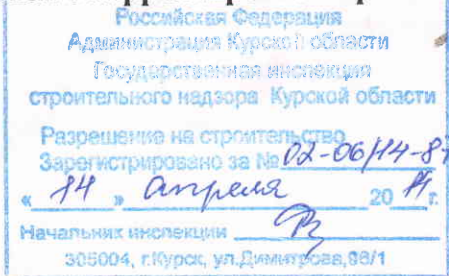 Российская Федерация
Администрация Курской области
Государственная инспекция
строительного надзора Курской области
Разрешение на строительство
Зарегистрировано за № 02-06/14-87
«14» апреля 20 г.
Начальник инспекции
305004, г.Курск, ул.Димитрова,96/1